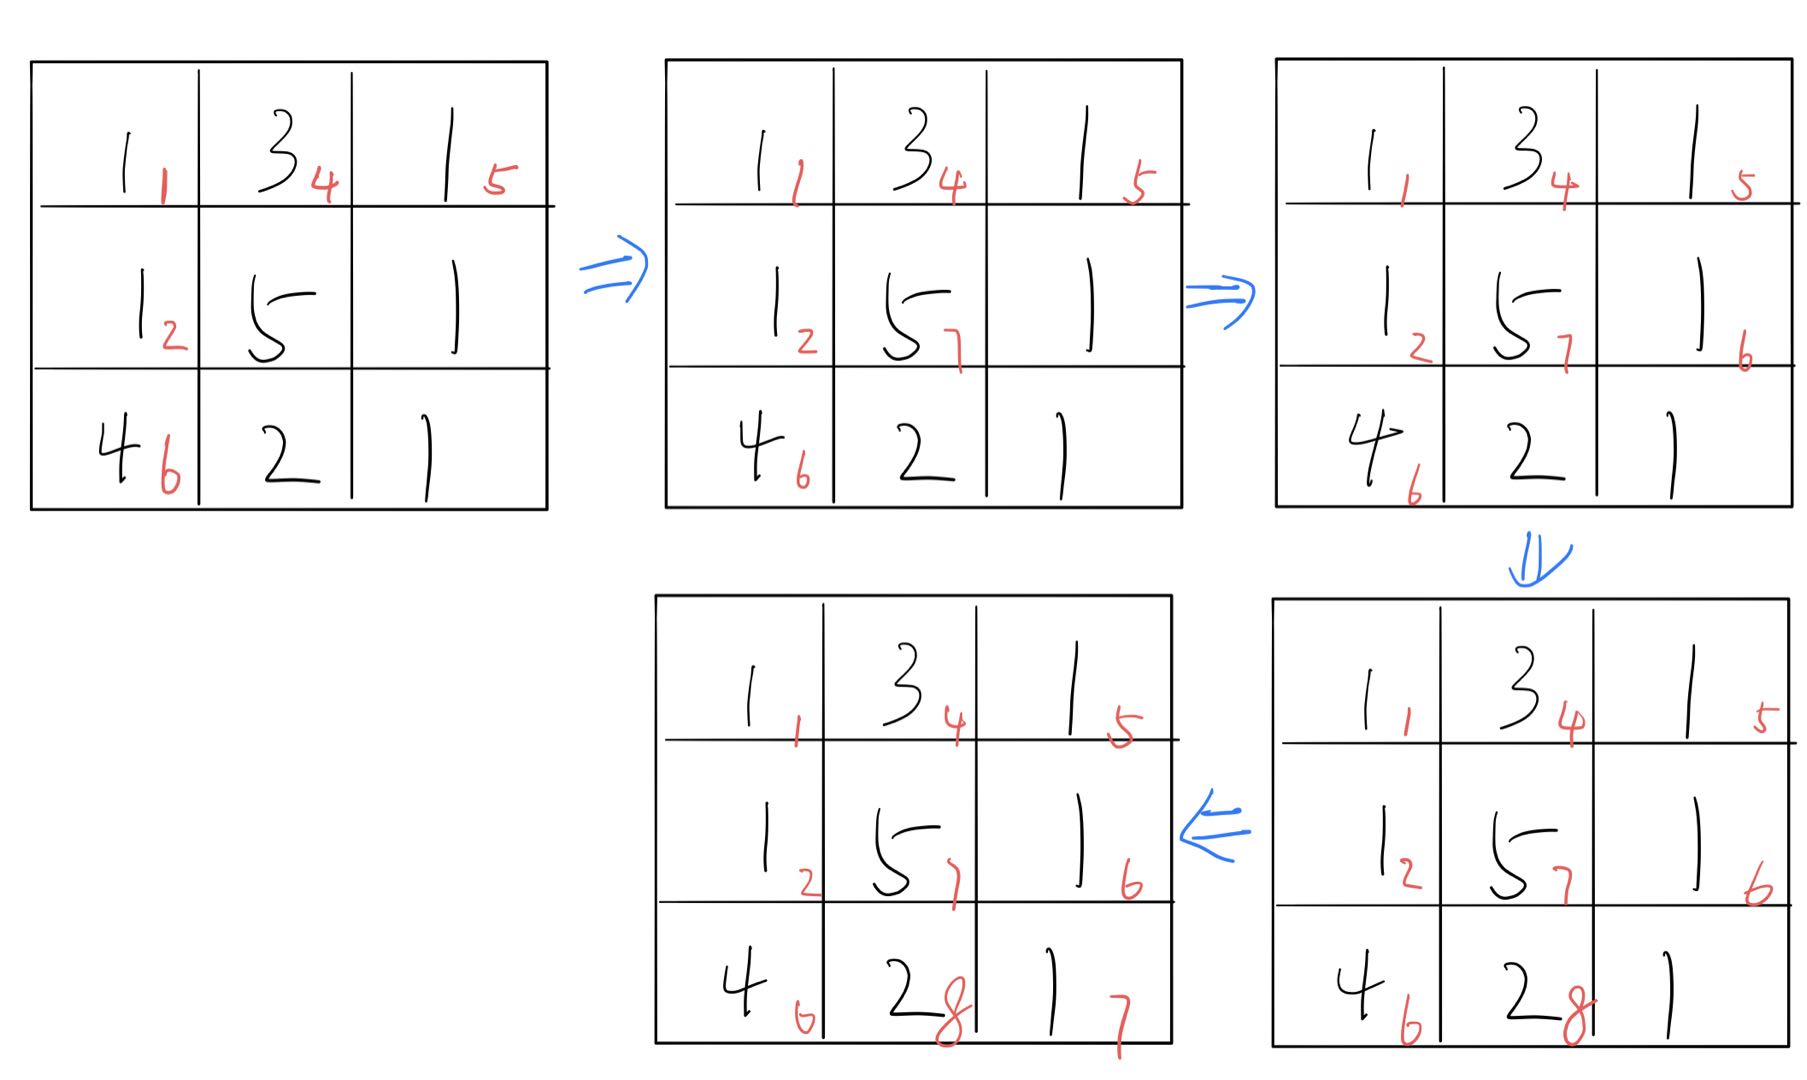 1 1 3 4 1 5
1 2 5 1
4 6 2 1
⇒
1 1 3 4 1 5
1 2 5 7 1
4 6 2 1
⇒
1 1 3 4 1 5
1 2 5 7 1 6
4 6 2 1
⇓
1 1 3 4 1 5
1 2 5 7 1 6
4 6 2 8 1
⇐
1 1 3 4 1 5
1 2 5 7 1 6
4 6 2 8 1 7